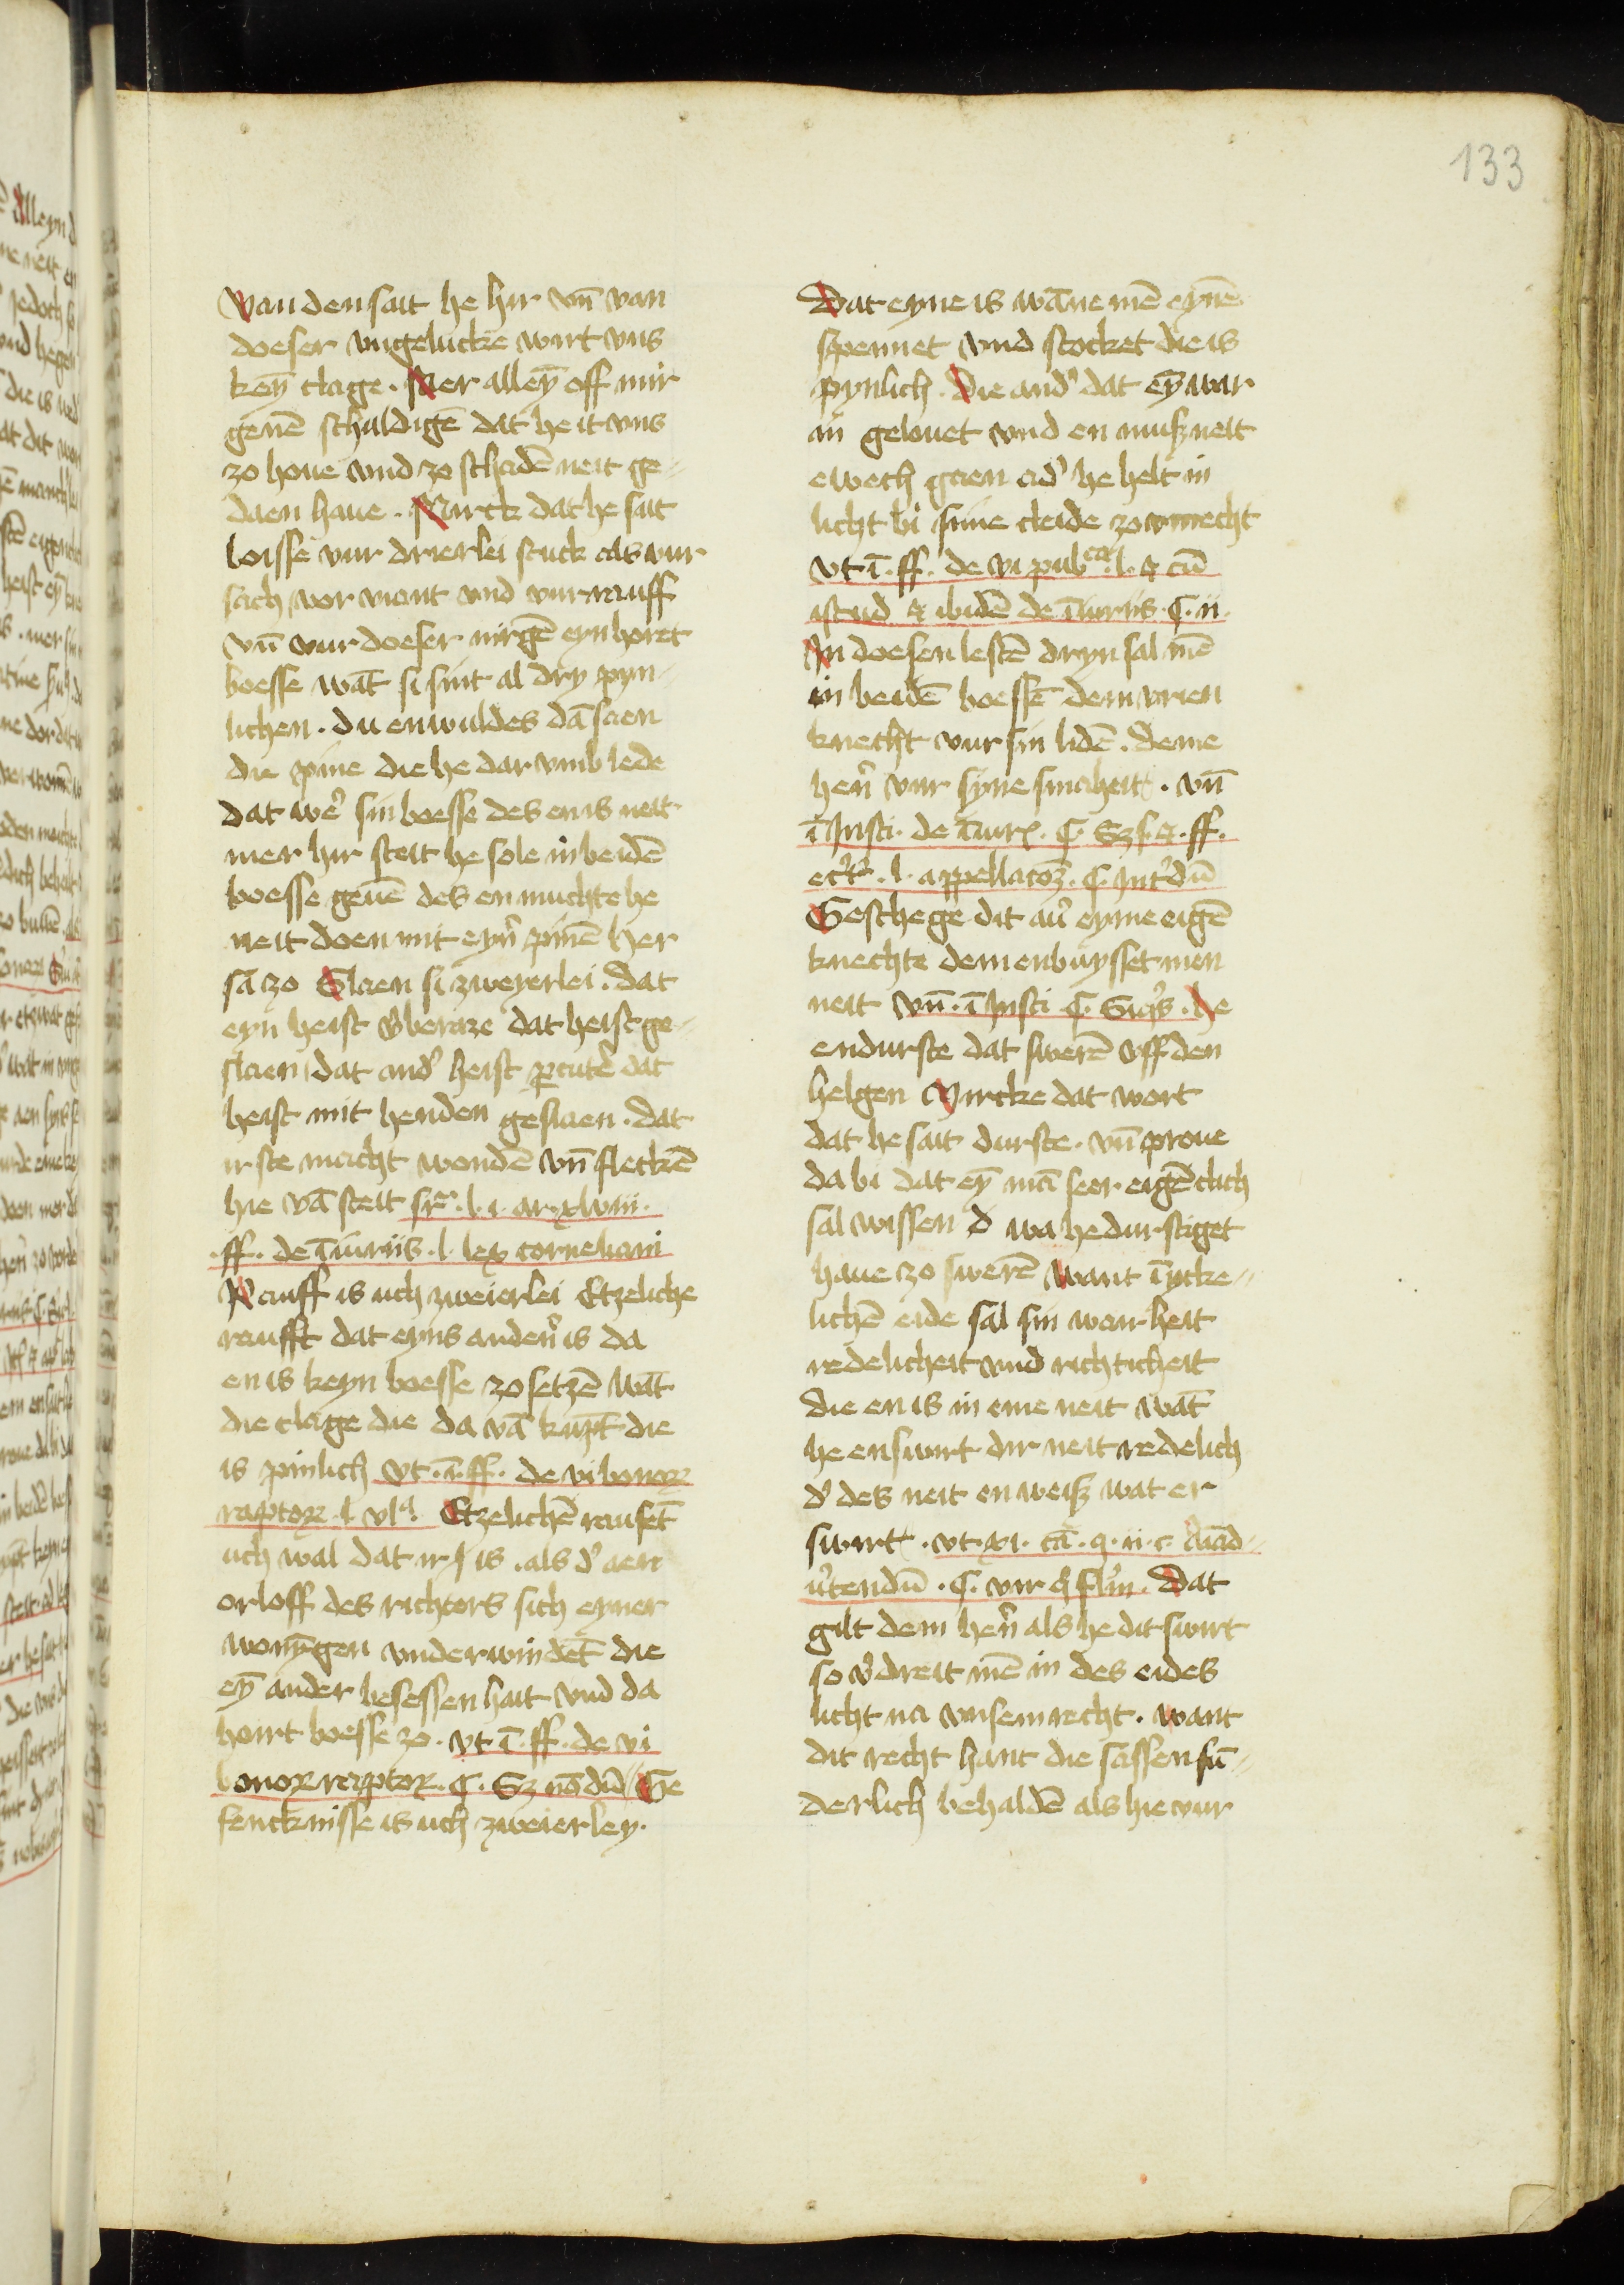 133
Van den sait he hir vn̄ van
doeser vngelucke wirt vns
keȳ clage. Mer alleȳ off mir
genē schuldigē dat he it vns
zo houe vnd zo schadē neit ge-
daen haue. Mirck dat he sait
boisse vur drierlei stuck als vur
sach vor want vnd vur rauff
vn̄ vur doeser nirgē eyn horet
boesse wāt si sint al dry pyn-
lichen. du enwuldes dā saen
die pine die he dar vmb lede
dat we͛ sin boesse des enis neit
mer hir steit he sole in beidē
boesse geuē des en muchte he
neit doen mit eyn͛ pinē her
sā zo Slaen si zweyerlei. dat
eyn heist v͛beraze dat heist ge-
slaen dat and͛ heist p̱cute͛ dat
heist mit henden geslaen. dat
irste macht wondē vn̄ fleckē
hie vā steit sr͛. l. i. ar. xlviii.
.ff. de īiuriis. l. lex corneliani
Rauff is uch zweierlei Etzeliche
raufft dat eyns anden͛ is da
enis keyn boesse zo setzē wāt
die clage die da vā kūpt die
is pinlich vt. ī. ff. de vi bonoꝝ
raptoꝝ l vlᵃ. Etzelichē rausēt
uch wal dat ir is. als d͛ aen
orloff des richters sich eyner
wonūgen vnderwindēt die
eȳ ander besessen hait vnd da
hoirt boesse zo. vt ī. ff. de vi
bonoꝝ raptoꝝ. C. Sz nō dū Ge
fencknisse is uch zweierley.
Dat eyne is wāne mē eynē
spennet vnd stocket die is
pynlich. Die and͛ dat eȳ war
in gelouet vnd en musz neit
ewech gaen ad͛ he helt in
licht bi sime cleide zo vnrecht
vt ī. ff. de vi pubᶜᵃ. l. & cū
istud & ibidē de īiuriis. C. ii.
In doesen lestē dryn sal mē
in beidē boessē dem vrien
knecht vur sin lidē. deme
hen͛ vur syne smaheit. vn̄
ī Insti. de īiurꝭ. C. Sz s. &. ff.
l. appellacoꝫ. C. Int͛dū
Geschege dit au͛ eyme eigē
knechte dem enbuysset men
neit vn̄. ī Insti C. Siqͥs. he
endurste dat swerē vff den
helgen Mircke dat wort
dat he sait durste. vn̄ proue
da bi dat eȳ mā seer eigēclich
sal wissen d wa he durstiget
haue zo swerē want īycke-
lichē eide sal sin wairheit
redelicheit vnd richticheit
die en is in eme neit wāt
he enswirt dir neit redelich
d͛ des neit en weisz wat er
swirt. vt. xi. cā. q. ii. c. Aīad-
u͛tendū. C. vir
Dat
gilt dem hen͛ als he dit swirt
so v͛dreit mē in des eides
licht na vnsem recht. want
dit recht hant die sassen sū-
derlich behaldē als hie vur